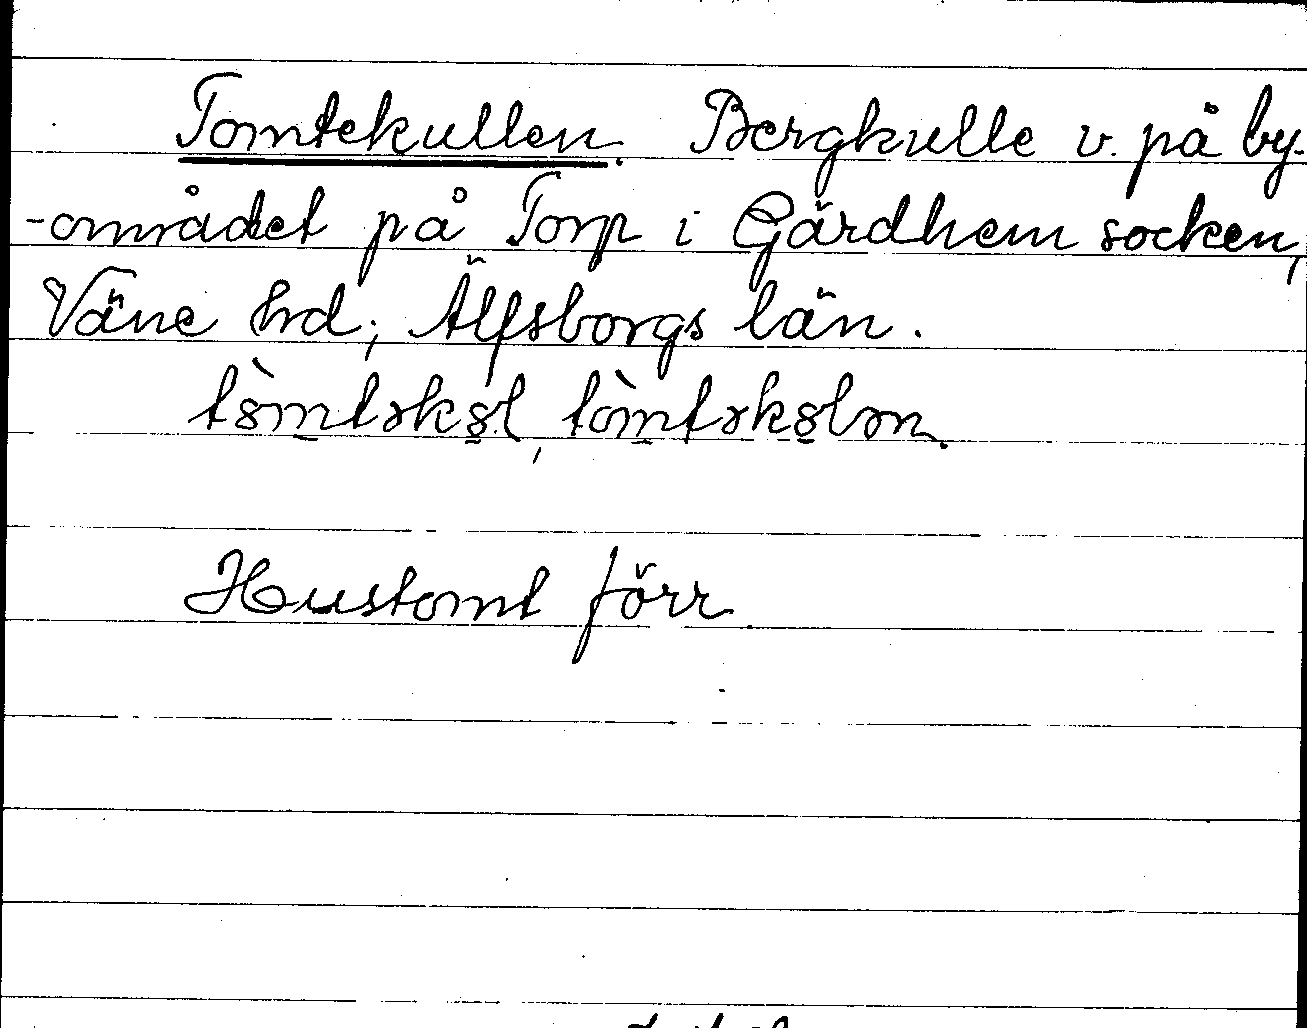 Tomtekullen. Bergkulle v. på by-
-området på Torp i Gärdhem socken,
Väne hrd; Älfsborgs län.
Hustomt förr.